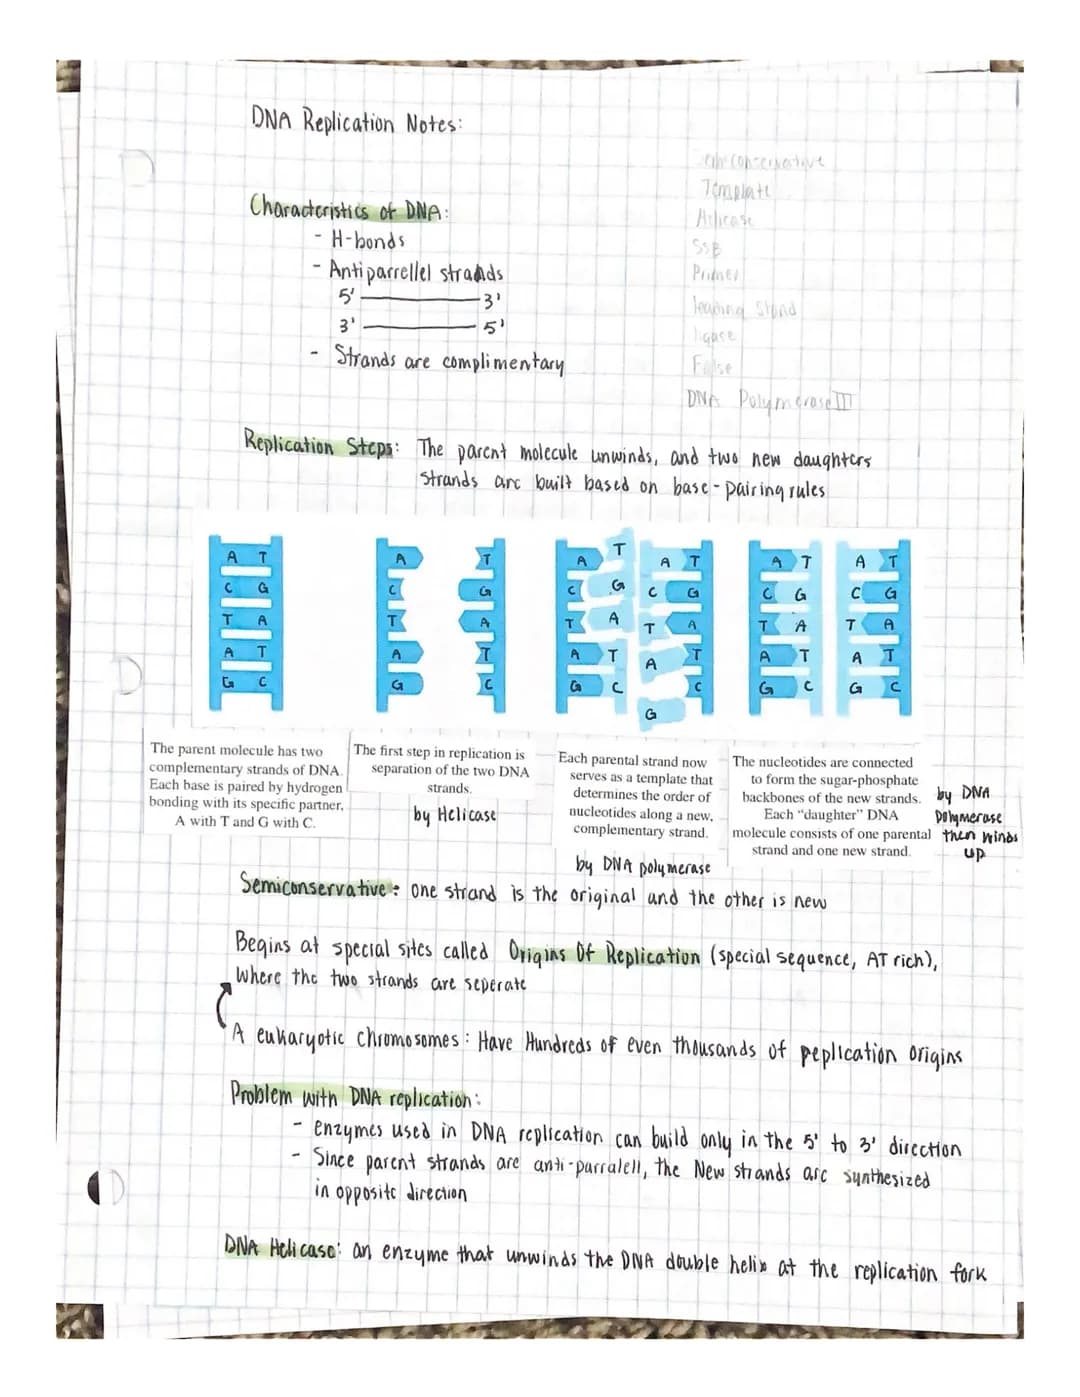 DNA Replication Notes:
Semiconservative
Template
Helicase
SSB
Primer
leading Stand
ligase
False
DNA Polymerase III
Characteristics of DNA:
- H-bonds
- Antiparrellel strands
5' 3'
3' 5'
- Strands are complimentary
Replication Steps: The parent molecule unwinds, and two new daughters
strands are built based on base-pairing rules
A T
C G
T A
A T
G C
A T
C G
T A
A T
G C
A T A T
C G C G
T A T A
A T A T
G C G C
A T A T
C G C G
T A T A
A T A T
G C G C
The parent molecule has two
complementary strands of DNA.
Each base is paired by hydrogen
bonding with its specific partner,
A with T and G with C.
The first step in replication is
separation of the two DNA
strands.
by Helicase
Each parental strand now
serves as a template that
determines the order of
nucleotides along a new,
complementary strand.
by DNA polymerase
The nucleotides are connected
to form the sugar-phosphate
backbones of the new strands.
Each “daughter” DNA
molecule consists of one parental
strand and one new strand.
by DNA
polymerase
then winds
up
Semiconservative: one strand is the original and the other is new
Begins at special sites called Origins Of Replication (special sequence, AT rich),
Where the two strands are seperate
A eukaryotic chromosomes: Have Hundreds of even thousands of peplication origins
Problem with DNA replication:
- enzymes used in DNA replication can build only in the 5' to 3' direction
- Since parent strands are anti-parralell, the New strands are synthesized
in opposite direction
DNA Helicase: an enzyme that unwinds the DNA double helix at the replication fork